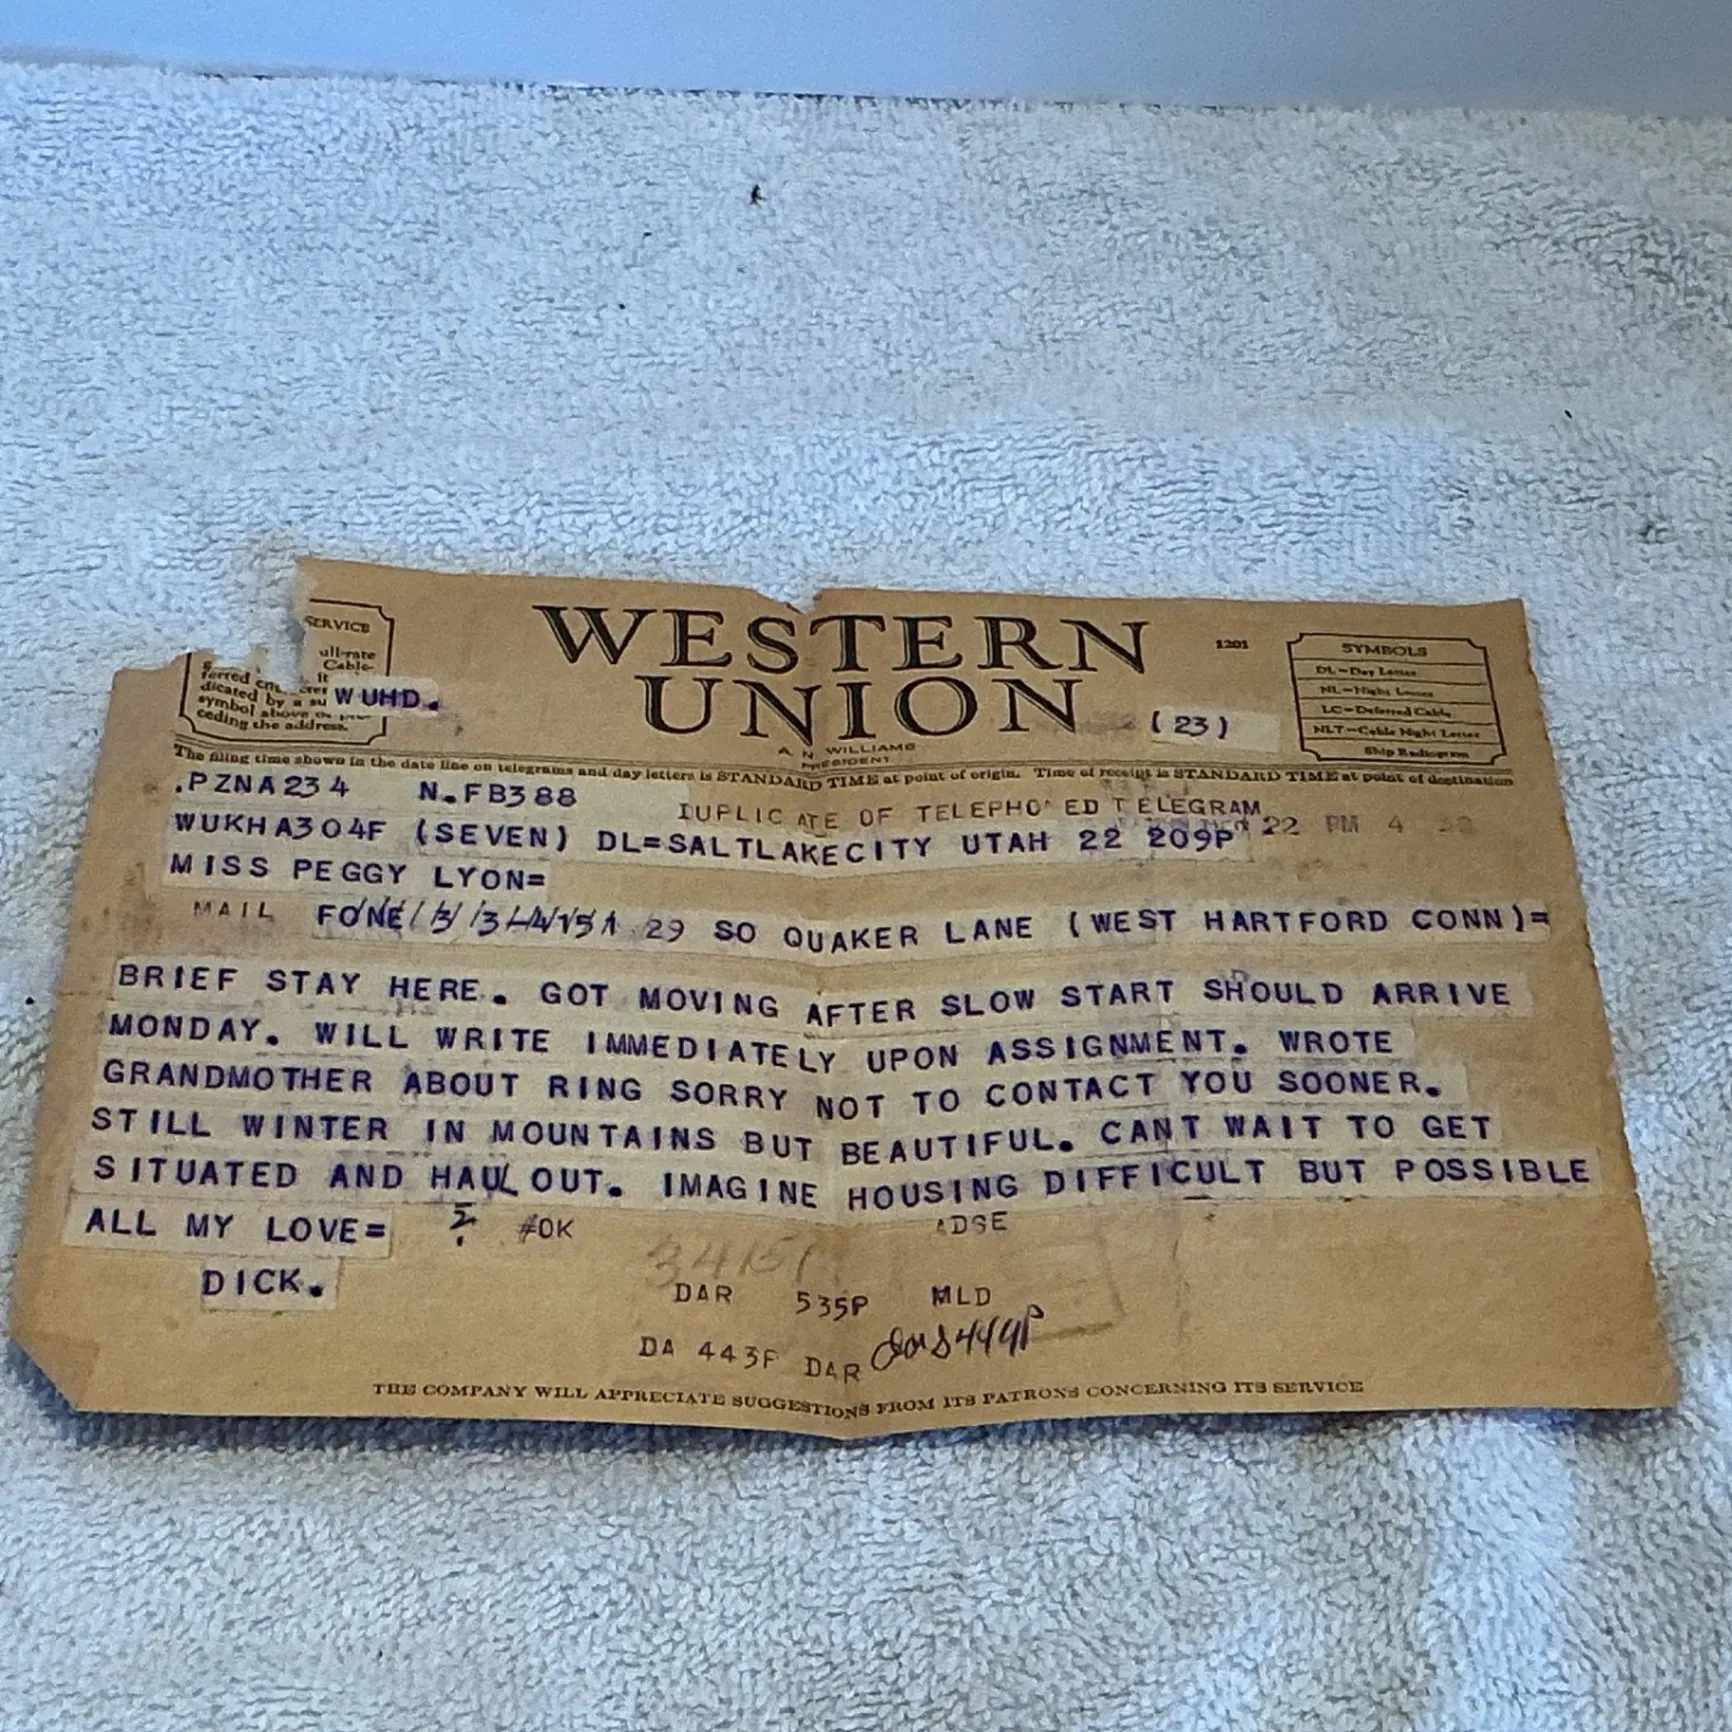 SERVICE
ull-rate
Cable-
ferred
dicated by a su WUHD.
symbol above
ceding the address.
WESTERN
UNION
1201
(23)
A. N. WILLIAMS
PRESIDENT
SYMBOLS
DL=Day Letter
NL=Night Letter
LC=Deferred Cable
NLT=Cable Night Letter
Ship Radiogram
The filing time shown in the date line on telegrams and day letters is STANDARD TIME at point of origin. Time of receipt is STANDARD TIME at point of destination
.PZNA234 N.FB388
IUPLICATE OF TELEPHO ED TELEGRAM
WUKHA304F (SEVEN) DL=SALTLAKECITY UTAH 22 209P 22 PM 4
MISS PEGGY LYON=
MAIL FONE 29 SO QUAKER LANE (WEST HARTFORD CONN)=
BRIEF STAY HERE. GOT MOVING AFTER SLOW START SHOULD ARRIVE
MONDAY. WILL WRITE IMMEDIATELY UPON ASSIGNMENT. WROTE
GRANDMOTHER ABOUT RING SORRY NOT TO CONTACT YOU SOONER.
STILL WINTER IN MOUNTAINS BUT BEAUTIFUL. CANT WAIT TO GET
SITUATED AND HAUL OUT. IMAGINE HOUSING DIFFICULT BUT POSSIBLE
ALL MY LOVE= #OK DSE
DICK.
34151
DAR 535P MLD
DA 443P DAR
THE COMPANY WILL APPRECIATE SUGGESTIONS FROM ITS PATRONS CONCERNING ITS SERVICE